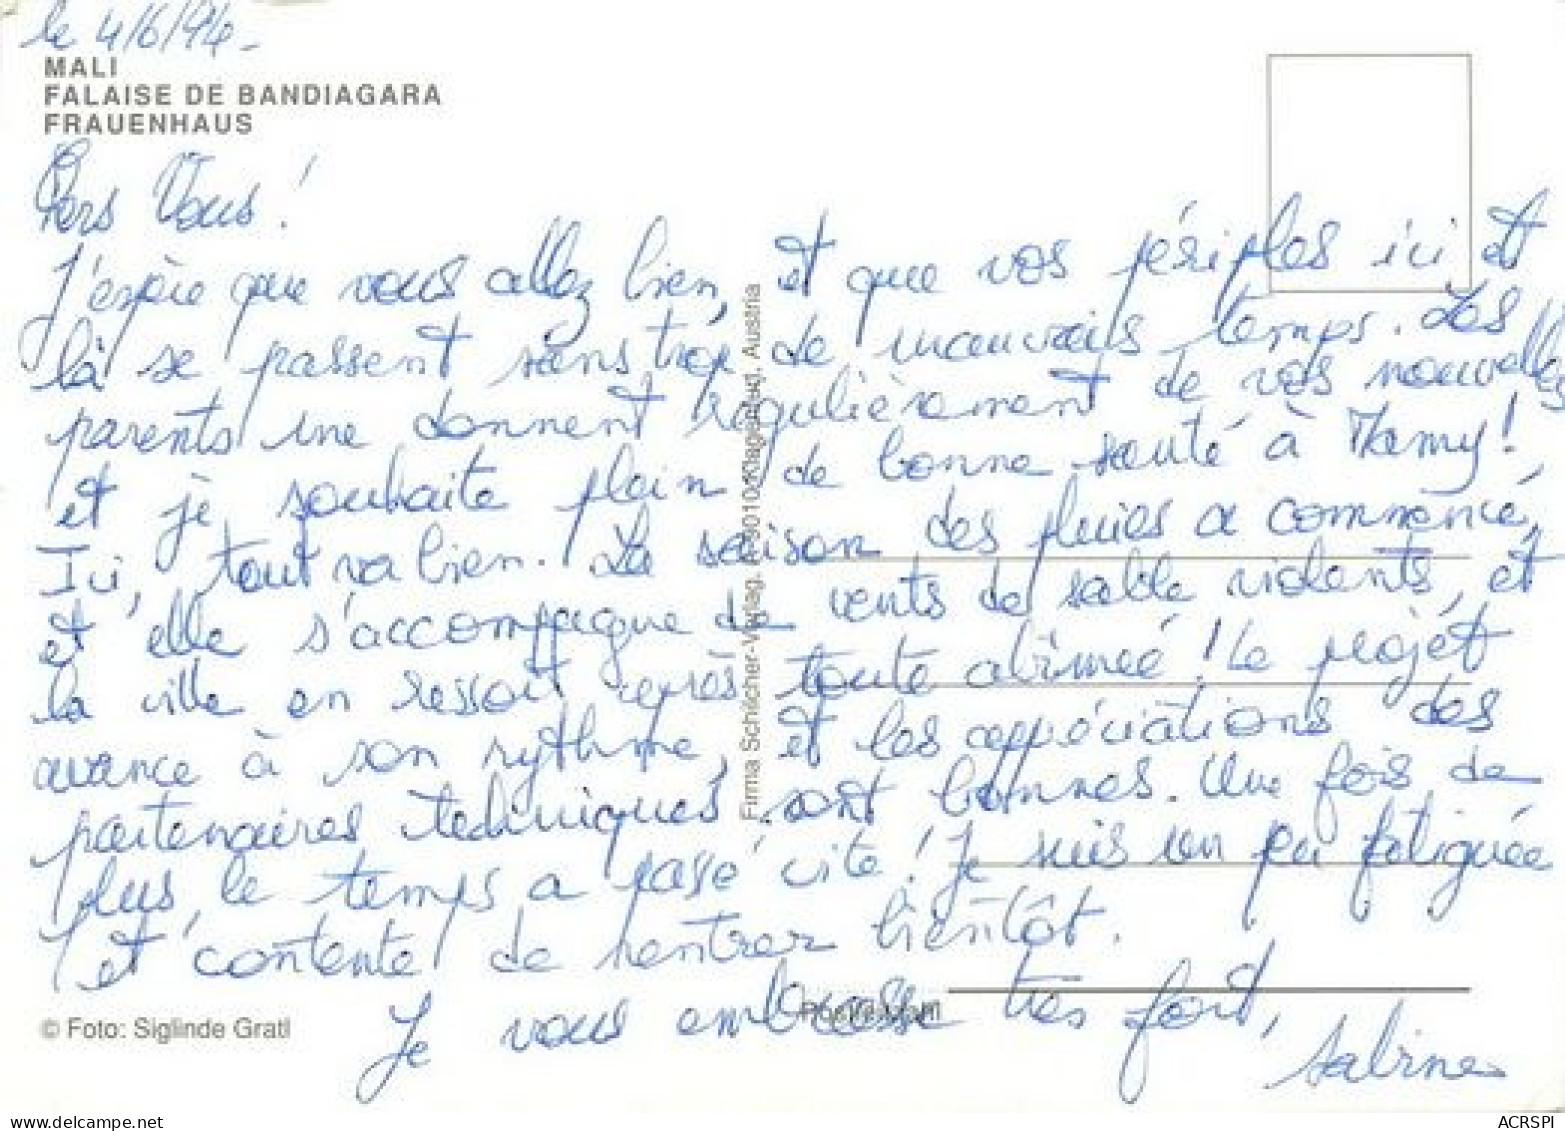 le 4/6/94 -
MALI
FALAISE DE BANDIAGARA
FRAUENHAUS
Chers Vous !
J'espère que vous allez bien, et que vos périples ici et
là se passent sans trop de mauvais temps. Les
parents me donnent régulièrement de vos nouvelles
et je souhaite plein de bonne santé à Mamy !
Ici, tout va bien. La saison des pluies a commencé,
et elle s'accompagne de vents de sable violents, et
la ville en ressort après toute abîmée ! Le projet
avance à son rythme, et les appréciations des
partenaires techniques sont bonnes. Une fois de
plus, le temps a passé vite ! Je suis un peu fatiguée
et contente de rentrer bientôt.
Je vous embrasse très fort,
Sabine
© Foto: Siglinde Gratl
Firma Schilcher-Verlag, Klagenfurt, Austria
www.delcampe.net
ACRSPI